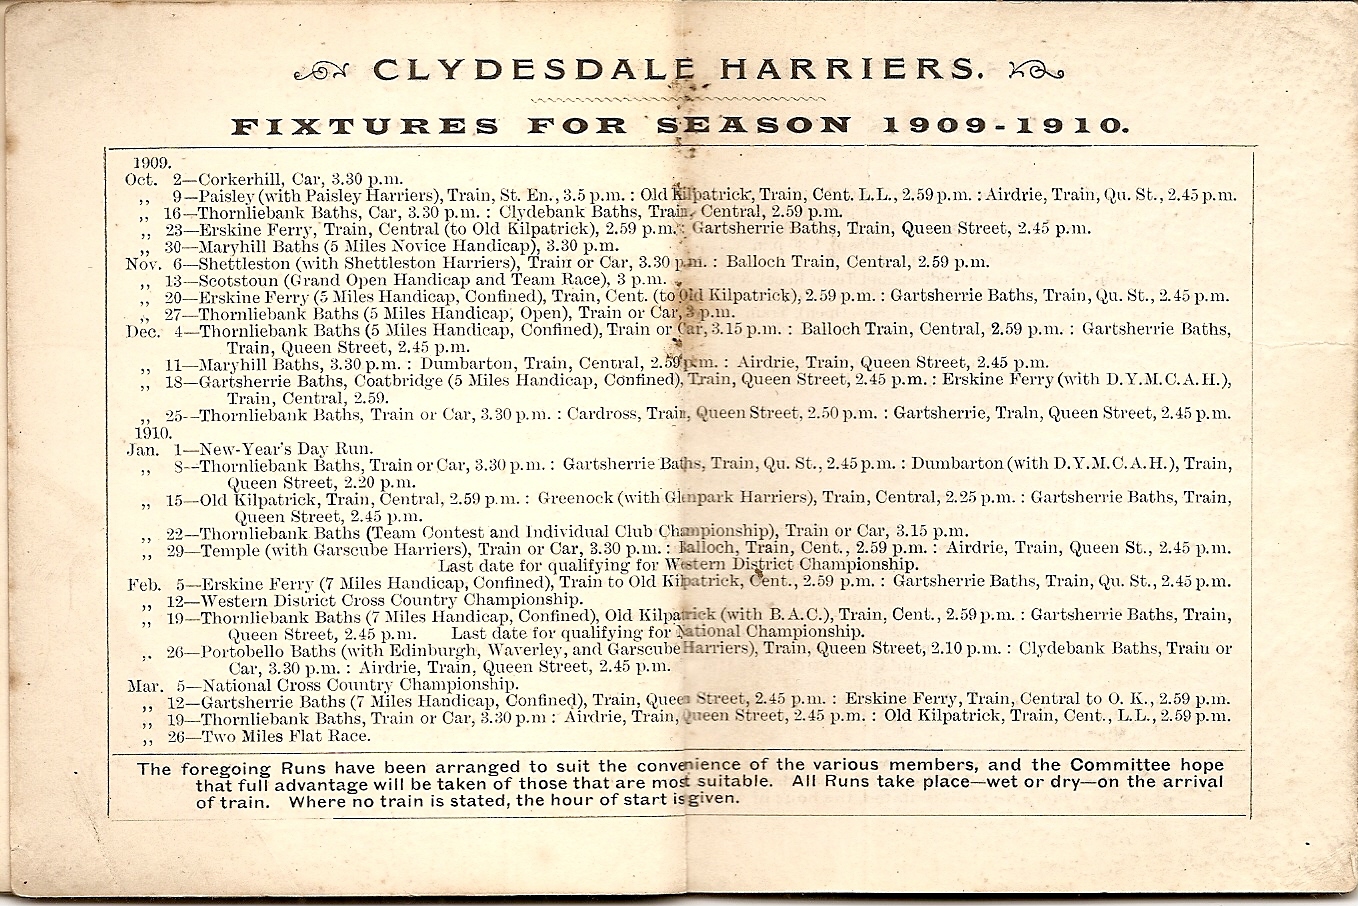 CLYDESDALE HARRIERS.
FIXTURES FOR SEASON 1909-1910.
1909.
Oct. 2—Corkerhill, Car, 3.30 p.m.
,, 9—Paisley (with Paisley Harriers), Train, St. En., 3.5 p.m. : Old Kilpatrick, Train, Cent. L.L., 2.59 p.m. : Airdrie, Train, Qu. St., 2.45 p.m.
,, 16—Thornliebank Baths, Car, 3.30 p.m. : Clydebank Baths, Train, Central, 2.59 p.m.
,, 23—Erskine Ferry, Train, Central (to Old Kilpatrick), 2.59 p.m. : Gartsherrie Baths, Train, Queen Street, 2.45 p.m.
,, 30—Maryhill Baths (5 Miles Novice Handicap), 3.30 p.m.
Nov. 6—Shettleston (with Shettleston Harriers), Train or Car, 3.30 p.m. : Balloch Train, Central, 2.59 p.m.
,, 13—Scotstoun (Grand Open Handicap and Team Race), 3 p.m.
,, 20—Erskine Ferry (5 Miles Handicap, Confined), Train, Cent. (to Old Kilpatrick), 2.59 p.m. : Gartsherrie Baths, Train, Qu. St., 2.45 p.m.
,, 27—Thornliebank Baths (5 Miles Handicap, Open), Train or Car, 3 p.m.
Dec. 4—Thornliebank Baths (5 Miles Handicap, Confined), Train or Car, 3.15 p.m. : Balloch Train, Central, 2.59 p.m. : Gartsherrie Baths,
Train, Queen Street, 2.45 p.m.
,, 11—Maryhill Baths, 3.30 p.m. : Dumbarton, Train, Central, 2.59 p.m. : Airdrie, Train, Queen Street, 2.45 p.m.
,, 18—Gartsherrie Baths, Coatbridge (5 Miles Handicap, Confined), Train, Queen Street, 2.45 p.m. : Erskine Ferry (with D.Y.M.C.A.H.),
Train, Central, 2.59.
,, 25—Thornliebank Baths, Train or Car, 3.30 p.m. : Cardross, Train, Queen Street, 2.50 p.m. : Gartsherrie, Train, Queen Street, 2.45 p.m.
1910.
Jan. 1—New-Year's Day Run.
,, 8—Thornliebank Baths, Train or Car, 3.30 p.m. : Gartsherrie Baths, Train, Qu. St., 2.45 p.m. : Dumbarton (with D.Y.M.C.A.H.), Train,
Queen Street, 2.20 p.m.
,, 15—Old Kilpatrick, Train, Central, 2.59 p.m. : Greenock (with Glenpark Harriers), Train, Central, 2.25 p.m. : Gartsherrie Baths, Train,
Queen Street, 2.45 p.m.
,, 22—Thornliebank Baths (Team Contest and Individual Club Championship), Train or Car, 3.15 p.m.
,, 29—Temple (with Garscube Harriers), Train or Car, 3.30 p.m. : Balloch, Train, Cent., 2.59 p.m. : Airdrie, Train, Queen St., 2.45 p.m.
Last date for qualifying for Western District Championship.
Feb. 5—Erskine Ferry (7 Miles Handicap, Confined), Train to Old Kilpatrick, Cent., 2.59 p.m. : Gartsherrie Baths, Train, Qu. St., 2.45 p.m.
,, 12—Western District Cross Country Championship.
,, 19—Thornliebank Baths (7 Miles Handicap, Confined), Old Kilpatrick (with B.A.C.), Train, Cent., 2.59 p.m. : Gartsherrie Baths, Train,
Queen Street, 2.45 p.m. Last date for qualifying for National Championship.
,, 26—Portobello Baths (with Edinburgh, Waverley, and Garscube Harriers), Train, Queen Street, 2.10 p.m. : Clydebank Baths, Train or
Car, 3.30 p.m. : Airdrie, Train, Queen Street, 2.45 p.m.
Mar. 5—National Cross Country Championship.
,, 12—Gartsherrie Baths (7 Miles Handicap, Confined), Train, Queen Street, 2.45 p.m. : Erskine Ferry, Train, Central to O. K., 2.59 p.m.
,, 19—Thornliebank Baths, Train or Car, 3.30 p.m : Airdrie, Train, Queen Street, 2.45 p.m. : Old Kilpatrick, Train, Cent., L.L., 2.59 p.m.
,, 26—Two Miles Flat Race.
The foregoing Runs have been arranged to suit the convenience of the various members, and the Committee hope
that full advantage will be taken of those that are most suitable. All Runs take place—wet or dry—on the arrival
of train. Where no train is stated, the hour of start is given.